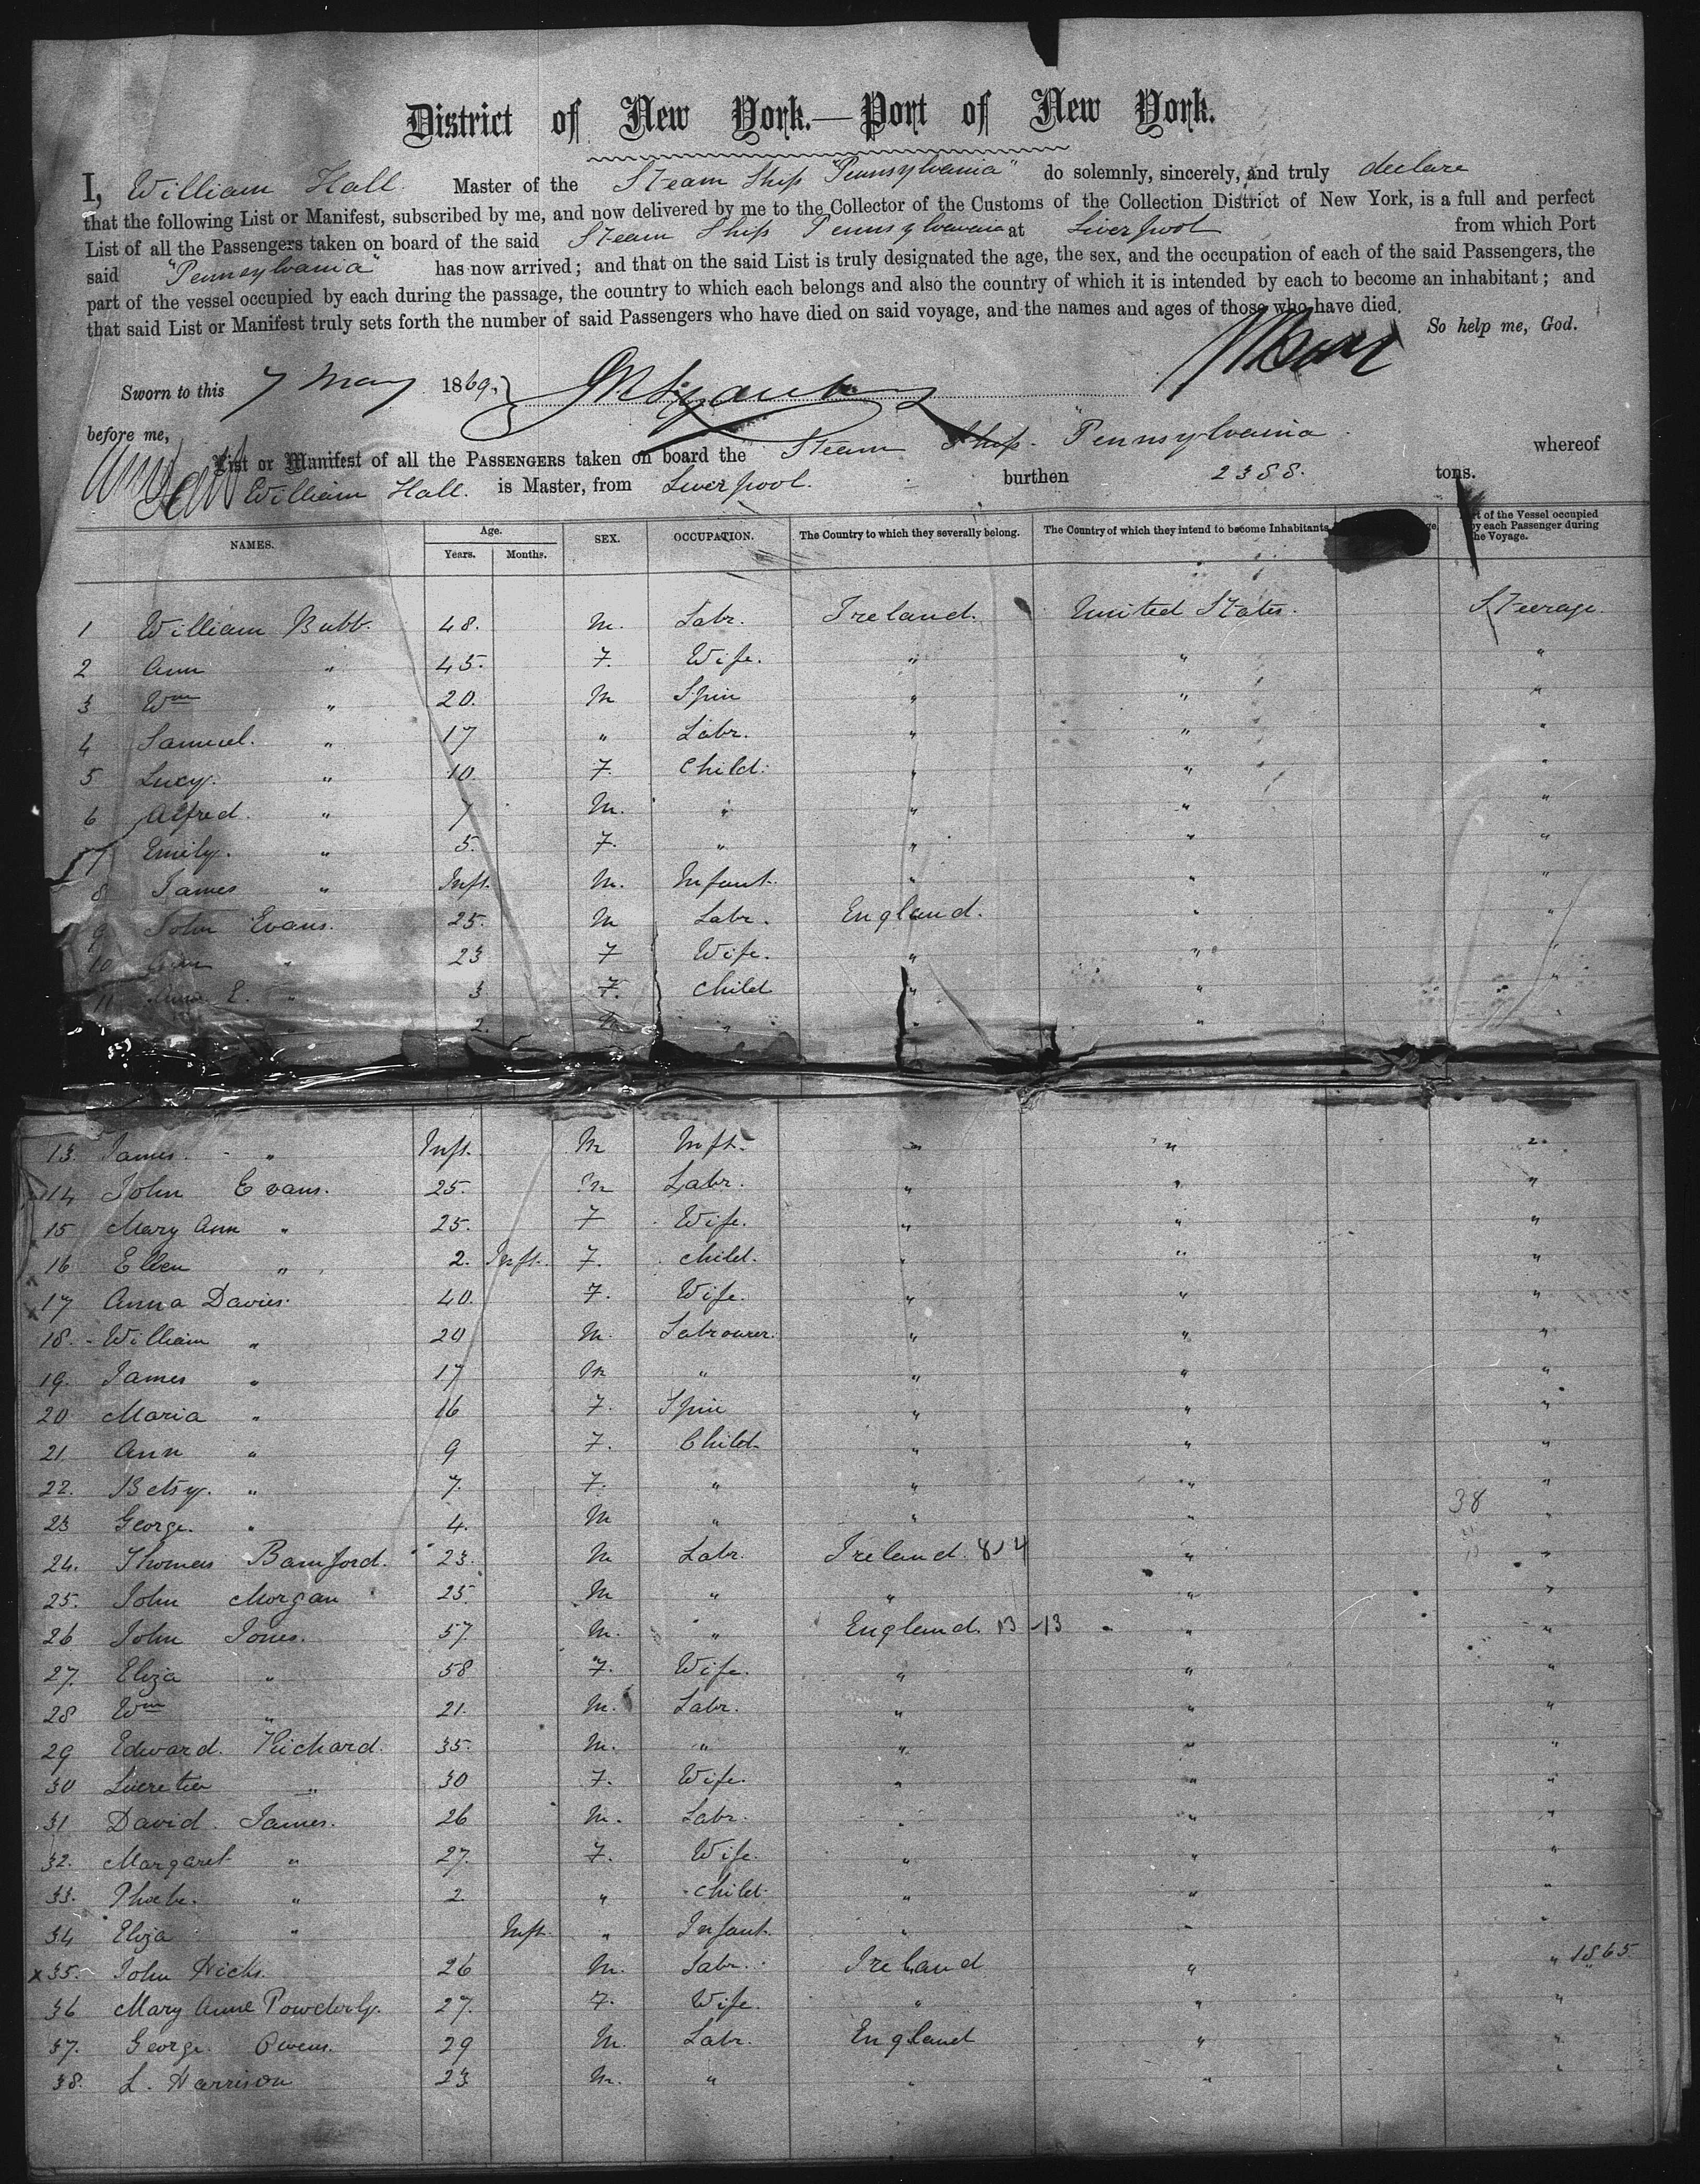 District of New York.—Port of New York.
I, William Hall Master of the Steam Ship "Pennsylvania" do solemnly, sincerely, and truly declare
that the following List or Manifest, subscribed by me, and now delivered by me to the Collector of the Customs of the Collection District of New York, is a full and perfect
List of all the Passengers taken on board of the said Steam Ship Pennsylvania at Liverpool from which Port
said "Pennsylvania" has now arrived; and that on the said List is truly designated the age, the sex, and the occupation of each of the said Passengers, the
part of the vessel occupied by each during the passage, the country to which each belongs and also the country of which it is intended by each to become an inhabitant; and
that said List or Manifest truly sets forth the number of said Passengers who have died on said voyage, and the names and ages of those who have died.
So help me, God.
Sworn to this 7 May 1869.
before me,
List or Manifest of all the PASSENGERS taken on board the Steam Ship "Pennsylvania whereof
William Hall. is Master, from Liverpool. burthen 2388. tons.
NAMES. Age. Years. Months. SEX. OCCUPATION. The Country to which they severally belong. The Country of which they intend to become Inhabitants. of the Vessel occupied by each Passenger during the Voyage.
1 William Bubb. 48. M. Labr. Ireland. United States. Steerage.
2 Ann " 45. F. Wife. " " "
3 Wm " 20. M Spin " " "
4 Samuel. " 17 " Labr. " " "
5 Lucy. " 10. F. Child. " " "
6 Alfred. " 7 M. " " " "
7 Emily. " 5. F. " " " "
8 James " Inft. M. Infant. " " "
9 John Evans. 25. M Labr. England. " "
10 Ann " 23 F Wife. " " "
11 E. " 3 F. Child " " "
" 2. " " "
13. James. " Inft. M Inft. " " "
14 John Evans. 25. M Labr. " " "
15 Mary Ann " 25. F Wife. " " "
16 Ellen " 2. Inft. F. Child. " " "
17 Anna Davies. 40. F. Wife. " " "
18. William " 20 M. Labrourer. " " "
19. James " 17 M " " " "
20. Maria " 16 F. Spin " " "
21. Ann " 9 F. Child " " "
22. Betsy. " 7. F. " " " "
23 George. " 4. M " " " " 38
24. Thomas Bamford. 23. M Labr. Ireland. 8 14 " "
25. John Morgan 25. M " " " "
26 John Jones. 57. M. " England. 13 -13 " "
27. Eliza " 58 F. Wife. " " "
28 Wm " 21. M. Labr. " " "
29 Edward. Richard. 35. M. " " " "
30 Lucretia " 30 F. Wife. " " "
31 David. James. 26 M. Labr. " " "
32. Margaret " 27. F. Wife. " " "
33. Phoebe. " 2. " Child. " " "
34 Eliza " Inft. " Infant. " " "
x 35. John Hicks. 26 M. Labr. Ireland " " 1865
36 Mary Anne Powderly. 27. F. Wife. " " "
37. George. Owens. 29 M. Labr. England " "
38. L. Harrison 23 M. " " " "